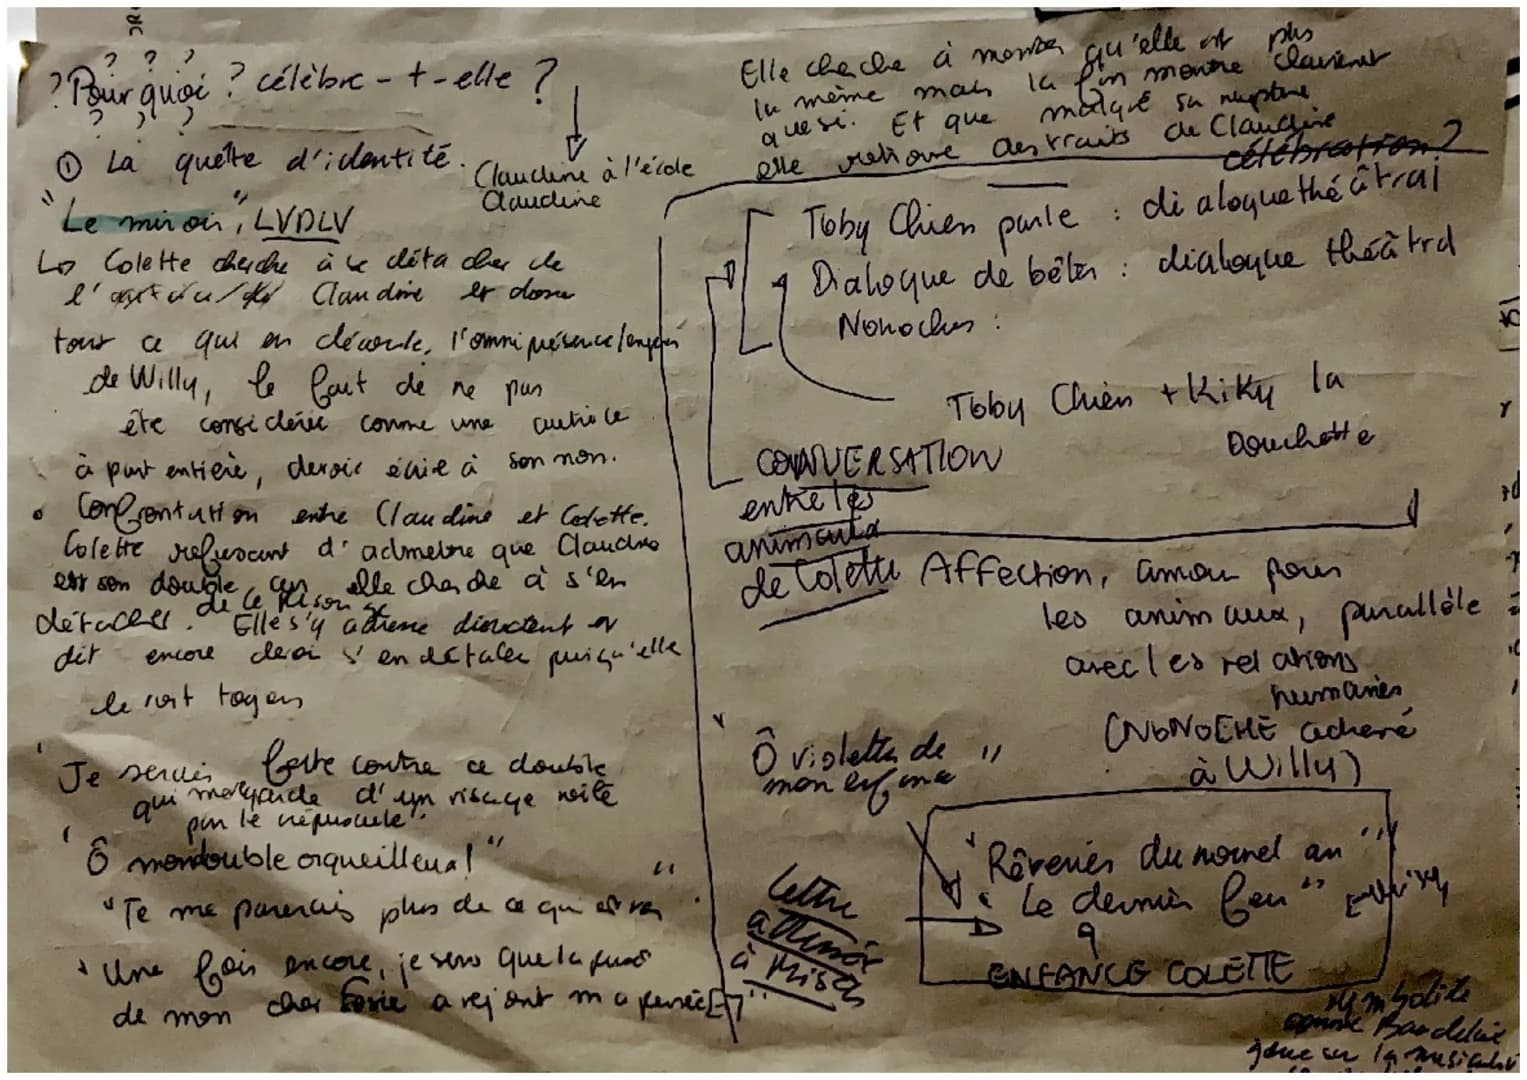 ? Pourquoi ? célèbre-t-elle ?
① La quête d'identité.
Claudine à l'école
Claudine
"Le miroir", LVDLV
↳ Colette cherche à se détacher de
l' Claudine et donc
tout ce qui en découle, l'omniprésence
de Willy, le fait de ne pas
être considérée comme une autrice
à part entière, devoir écrire à son nom.
• Confrontation entre Claudine et Colette.
Colette refusant d'admettre que Claudine
est son double, car elle cherche à s'en
détacher. Elle s'y adresse directement et
dit encore devoir s'en détacher puisqu'elle
le voit toujours
Je serais forte contre ce double
qui me regarde d'un visage voilé
par le crépuscule".
"Ô mon double orgueilleux!"
"Te me parerais plus de ce qui est
"Une fois encore, je sens que la
de mon cher a rejoint ma pensée [-]"
Elle cherche à montrer qu'elle est plus
la même mais la fin montre clairement
quasi. Et que malgré sa rupture
elle retrouve des traits de Claudine
célébration?
Toby Chien parle : dialogue théâtral
Dialogue de bêtes : dialogue théâtral
Nonoche :
Toby Chien + Kiky la
Doucette
CONVERSATION
entre les
animaux
de Colette
Affection, amour pour
les animaux, parallèle
avec les relations
humaines
(NONOCHE
à Willy)
"Ô violettes de
mon enfance"
"Rêveries du nouvel an"
"Le dernier feu"
ENFANCE COLETTE
Lettre
à Missy
comme Baudelaire
joue sur la musicalité